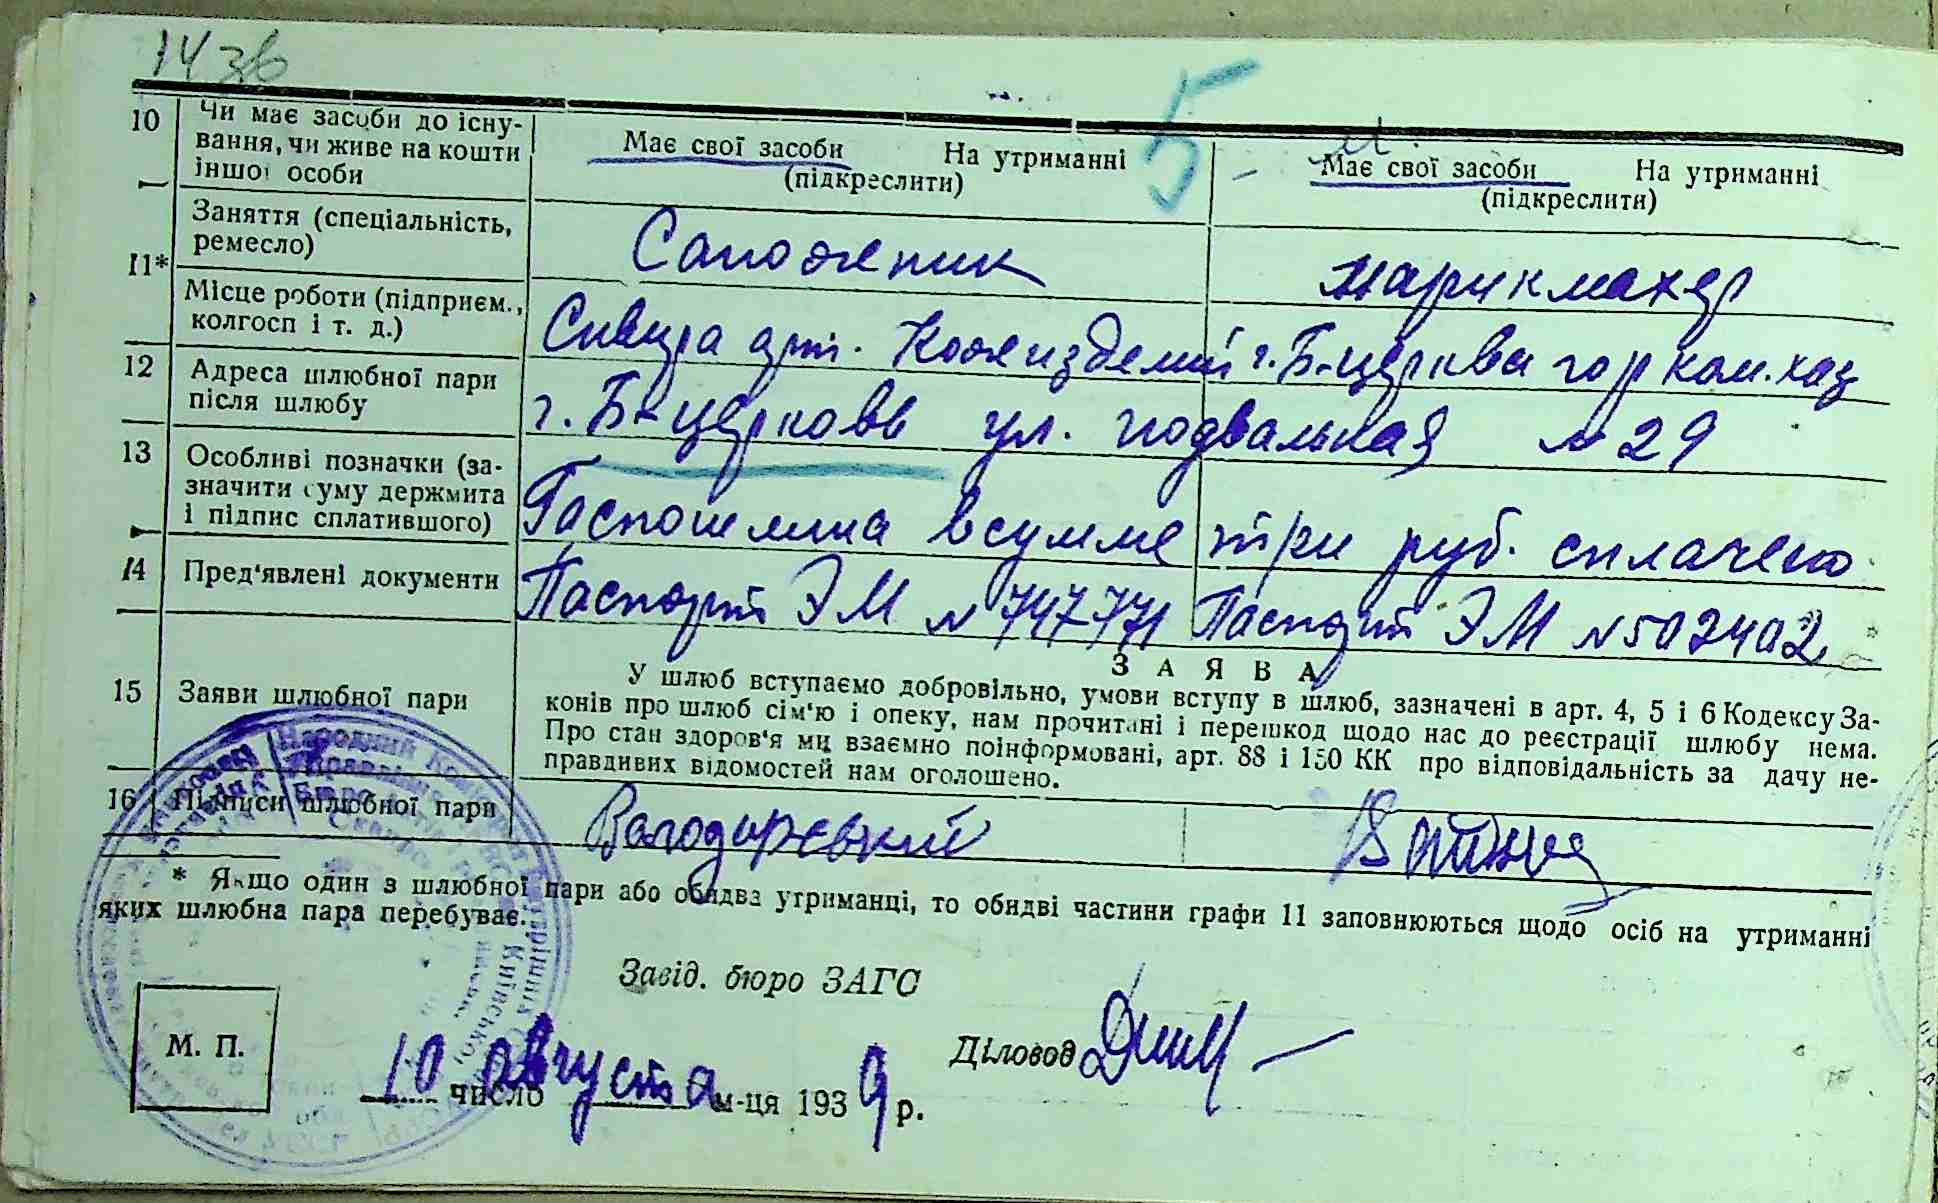 14 зв
5
10 Чи має засоби до існу-
вання, чи живе на кошти
іншої особи
Має свої засоби На утриманні
(підкреслити)
Має свої засоби На утриманні
(підкреслити)
11*
Заняття (спеціальність,
ремесло)
Сапожник
парикмахер
Місце роботи (підприєм.,
колгосп і т. д.)
Сквира арт. Кожизделий
г. Б-церква горком.хоз
12 Адреса шлюбної пари
після шлюбу
г. Б-церковь ул. подвальная № 29
13 Особливі позначки (за-
значити суму держмита
і підпис сплатившого)
Госпошлина в сумме три руб. сплачено
14 Пред'явлені документи
Паспорт ЭМ № 747771
Паспорт ЭМ № 502402
15 Заяви шлюбної пари
ЗАЯВА
У шлюб вступаємо добровільно, умови вступу в шлюб, зазначені в арт. 4, 5 і 6 Кодексу За-
конів про шлюб сім'ю і опеку, нам прочитані і перешкод щодо нас до реєстрації шлюбу нема.
Про стан здоров'я ми взаємно поінформовані, арт. 88 і 150 КК про відповідальність за дачу не-
правдивих відомостей нам оголошено.
16 Підписи шлюбної пари
Володарский
* Якщо один з шлюбної пари або обидва утриманці, то обидві частини графи 11 заповнюються щодо осіб на утриманні
яких шлюбна пара перебуває.
Завід. бюро ЗАГС
Діловод
М. П.
10 число августа м-ця 1939 р.